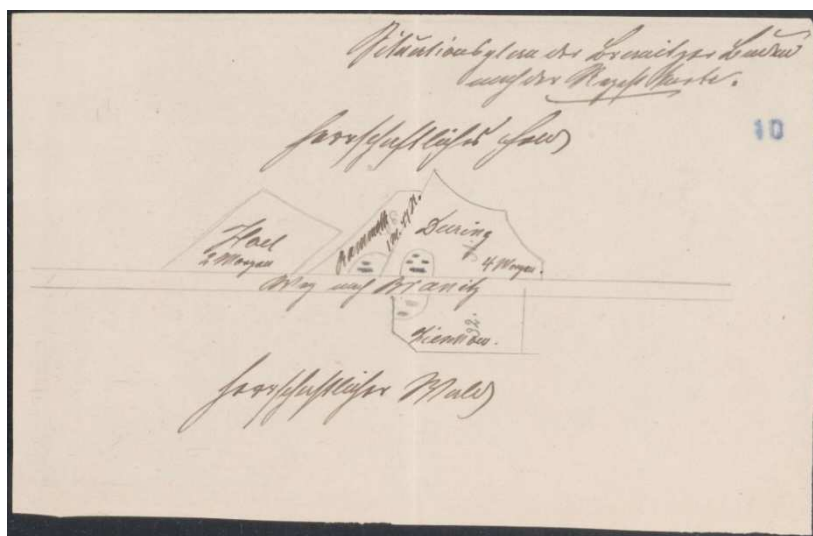 Situationsplan der Branitzer Buden
nach der Rezeß Karte.
10
herrschaftliches
Hoel
2 Morgen
1 M. 47 R.
During
4 Morgen.
Weg nach Branitz
32.
herrschaftlicher Wald